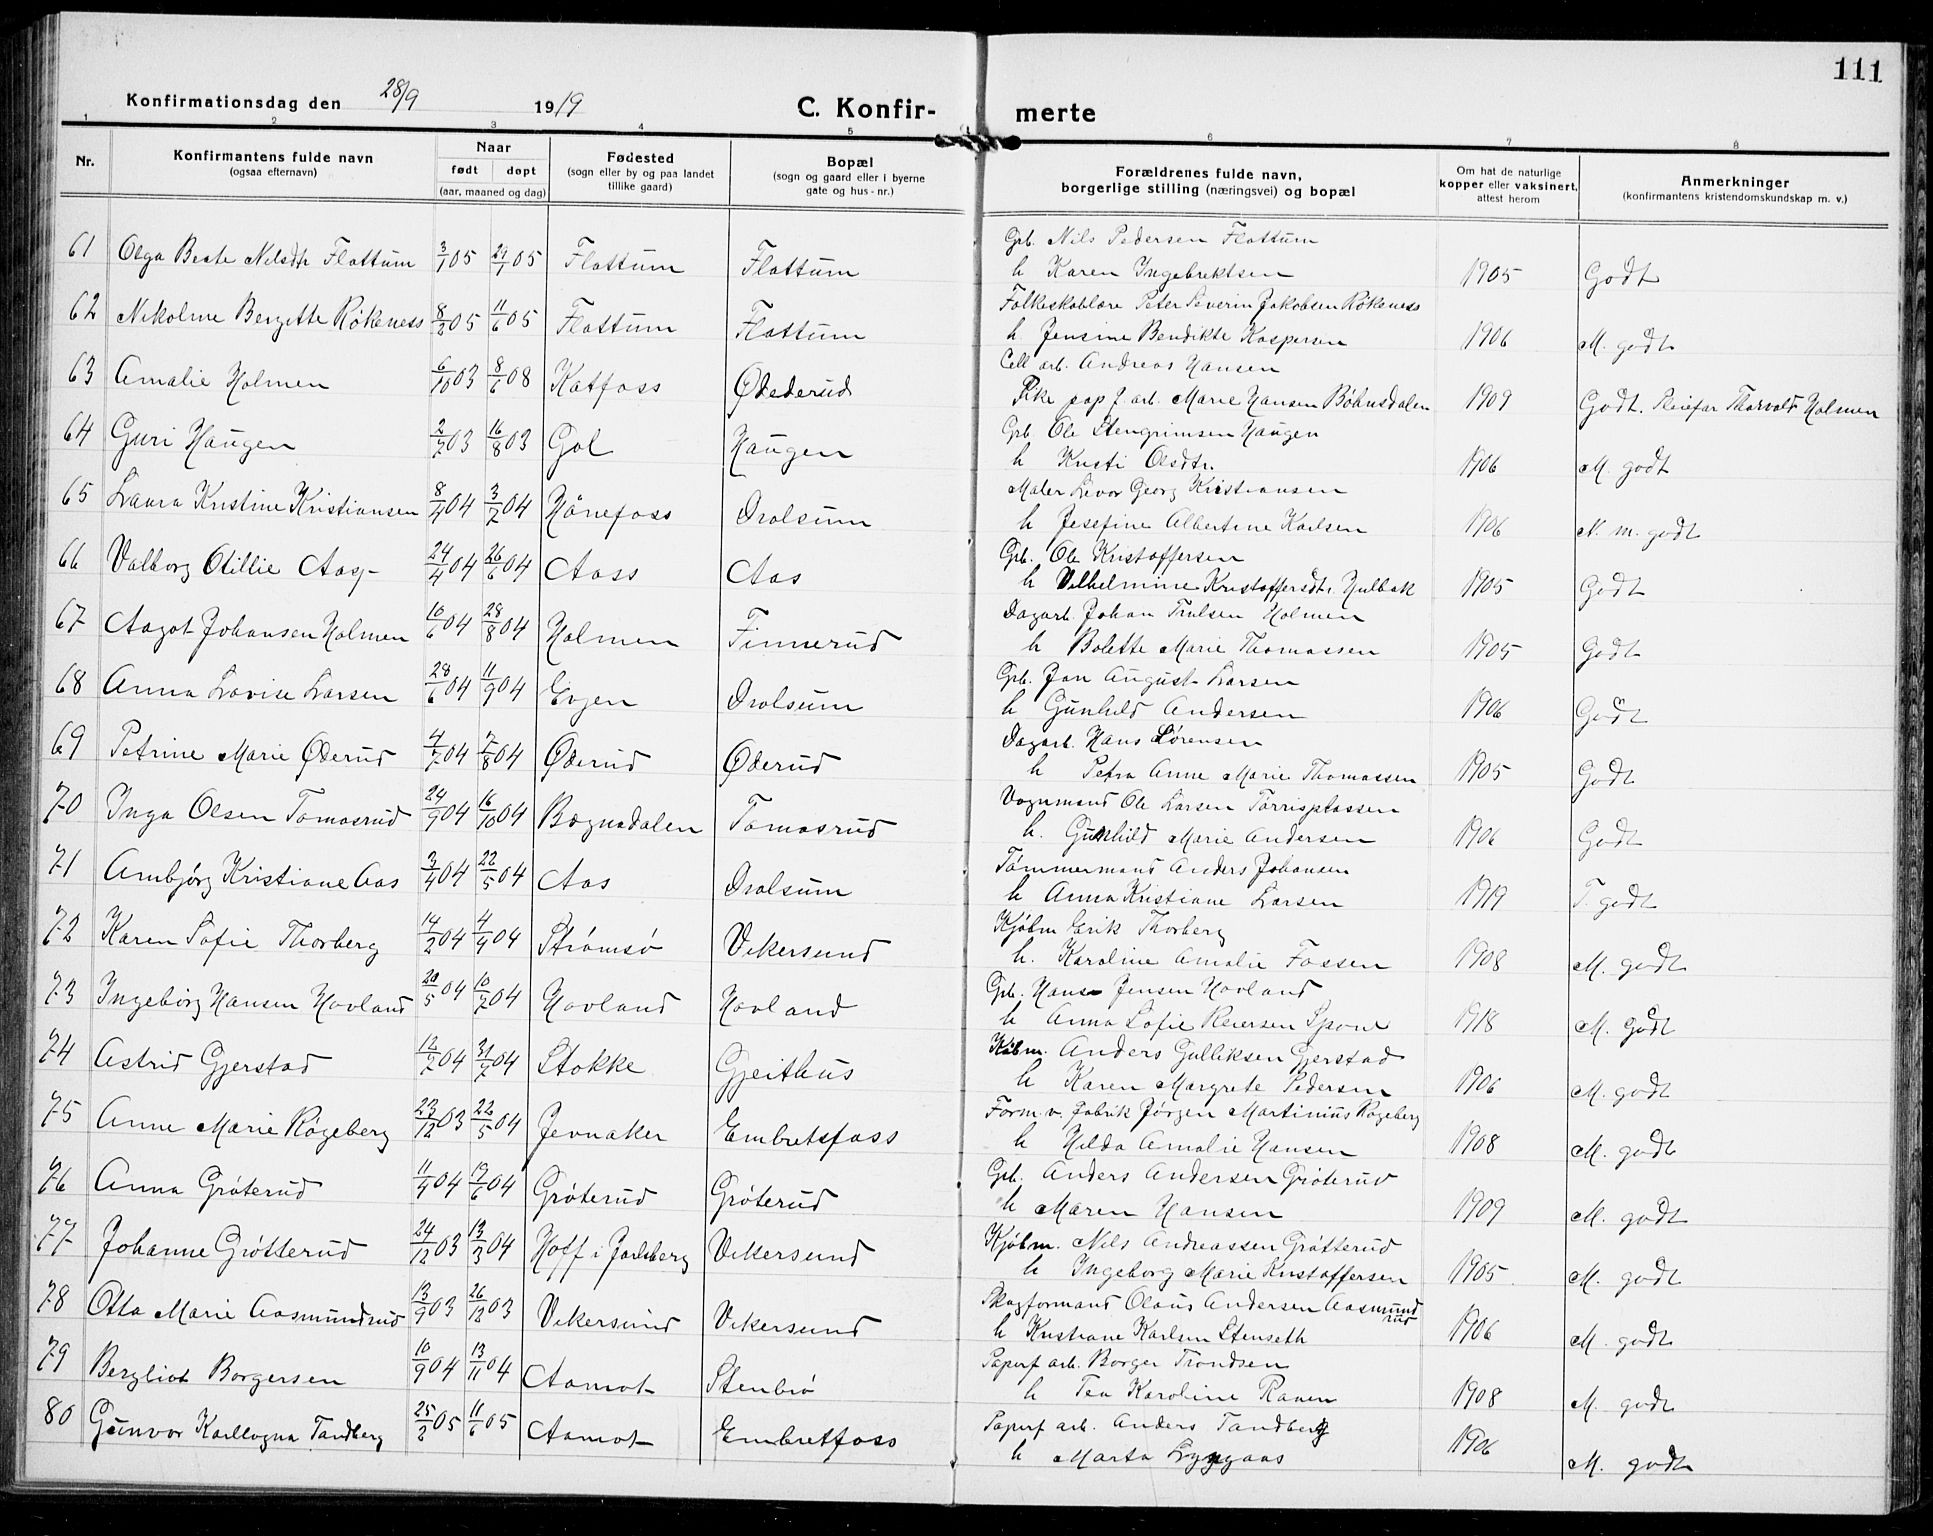 111
Konfirmationsdag den 28/9 1919 C. Konfir- merte
1 2 3 4 5 6 7 8
Nr. Konfirmantens fulde navn (ogsaa efternavn) Naar født døpt (aar, maaned og dag) Fødested (sogn eller by og paa landet tillike gaard) Bopæl (sogn og gaard eller i byerne gate og hus-nr.) Forældrenes fulde navn, borgerlige stilling (næringsvei) og bopæl Om hat de naturlige kopper eller vaksinert, attest herom Anmerkninger (konfirmantens kristendomskundskap m. v.)
61 Olga Beate Nilsdtr Flattum 3/1 05 29/1 05 Flattum Flattum Grb. Nils Pedersen Flattum
h Karen Ingebrektsen 1905 Godt
62 Nikoline Bergitte Røkeness 8/2 05 11/6 05 Flattum Flattum Folkeskolelære Peter Severin Jakobsen Røkeness
h Jensine Bendikte Kaspersen 1906 M. godt
63 Amalie Holmen 6/10 03 8/6 08 Katfoss Ødederud Cell arb. Andreas Hansen
Pike pap f. arb. Marie Hansen Bøhnsdalen 1909 Godt. Pleiefar Thorvald Holmen
64 Guri Haugen 2/7 03 16/8 03 Gol Haugen Grb. Ole Stengrimsen Haugen
h Kristi Olsdtr. 1906 M. godt
65 Laura Kristine Kristiansen 8/4 04 3/7 04 Hønefoss Drolsum Maler Levor Georg Kristiansen
h Josefine Albertine Karlsen 1906 N. m. godt
66 Valborg Otillie Aas 24/4 04 26/6 04 Aass Aas Grb. Ole Kristoffersen
h Vilhelmine Kristoffersdtr. Hulbak 1905 Godt
67 Aagot Johansen Holmen 10/6 04 28/8 04 Holmen Finnerud Dagarb. Johan Trulsen Holmen
h Bolette Marie Thomassen 1905 Godt
68 Anna Lovise Larsen 28/6 04 11/9 04 Evjen Drolsum Grb. Jon August Larsen
h Gunhild Andersen 1906 Godt
69 Petrine Marie Øderud 4/7 04 7/8 04 Øderud Øderud Dagarb. Hans Lørensen
h Petra Anne Marie Thomassen 1905 Godt
70 Inga Olsen Tomasrud 24/9 04 16/10 04 Bognadalen Tomasrud Vognmand Ole Larsen Torrisplassen
h. Gunhild Marie Andersen 1906 Godt
71 Ambjørg Kristiane Aas 3/4 04 22/5 04 Aas Drolsum Tømmermand Anders Johansen
h Anna Kristiane Larsen 1919 T. godt
72 Karen Sofie Thorberg 14/2 04 4/4 04 Strømsø Vikersund Kjøbm Erik Thorberg
h. Karoline Amalie Fossen 1908 M. godt
73 Ingebørg Hansen Hovland 20/5 04 10/7 04 Hovland Hovland Grb. Hans Jensen Hovland
h Anna Sofie Reiersen Spone 1918 M. godt
74 Astrid Gjerstad 12/7 04 31/7 04 Stokke Gjeithus Købm. Anders Gulliksen Gjerstad
h Karen Margrete Pedersen 1906 M. godt
75 Anne Marie Røgeberg 23/12 03 22/5 04 Jevnaker Embretsfoss Form. v. fabrik Jørgen Martinius Røgeberg
h Hilda Amalie Hansen 1908 M. godt
76 Anna Grøterud 11/4 04 17/6 04 Grøterud Grøterud Grb. Anders Andersen Grøterud
h Maren Hansen 1909 M. godt
77 Johanne Grøtterud 24/12 03 13/3 04 Hoff i Jarlsberg Vikersund Kjøbm. Nils Andreassen Grøtterud
h Ingeborg Marie Kristoffersen 1905 M. godt
78 Otta Marie Aasmundrud 13/9 03 26/12 03 Vikersund Vikersund Skogformand Olaus Andersen Aasmundrud
h Kristiane Karlsen Stenseth 1906 M. godt
79 Bergliot Borgersen 10/9 04 13/11 04 Aamot Stenbrø Paperf arb. Borger Trondsen
h Tea Karoline Raaen 1908 M. godt
80 Gunvor Karllogna Tandberg 25/2 05 11/6 05 Aamot Embretfoss Paperf arb. Anders Tandberg
h Marta Lyngaas 1906 M. godt